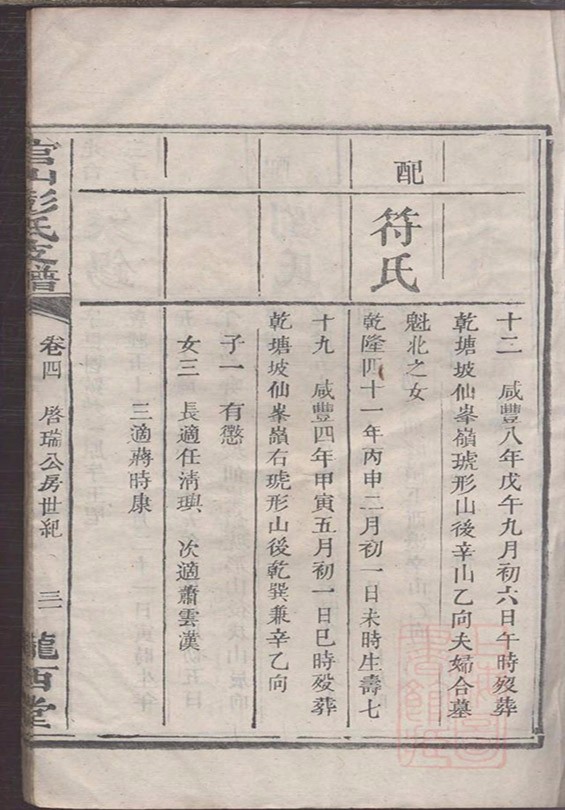 十二 咸豐八年戊午九月初六日午時歿葬
乾塘坡仙峯嶺琥形山後辛山乙向夫婦合墓
配 符氏
魁北之女
乾隆四十一年丙申二月初一日未時生壽七
十九 咸豐四年甲寅五月初一日巳時歿葬
乾塘坡仙峯嶺右琥形山後乾巽兼辛乙向
子一 有懲
女三 長適任清璵 次適蕭雲漢
三適蔣時康
官山彭氏支譜 卷四 啓瑞公房世紀 三 隴西堂